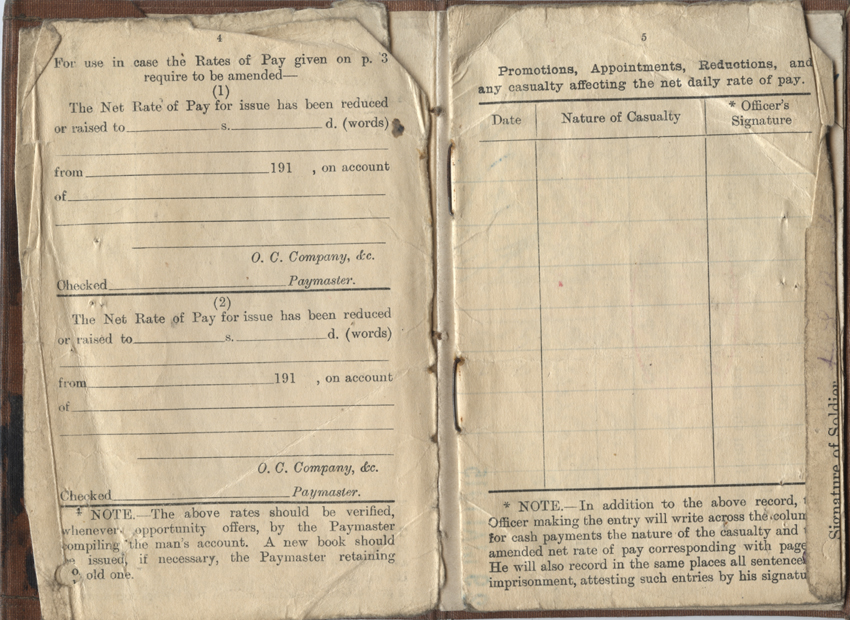 4
For use in case the Rates of Pay given on p. 3
require to be amended—
(1)
The Net Rate of Pay for issue has been reduced
or raised to s. d. (words)
from 191 , on account
of
O. C. Company, &c.
Checked Paymaster.
(2)
The Net Rate of Pay for issue has been reduced
or raised to s. d. (words)
from 191 , on account
of
O. C. Company, &c.
Checked Paymaster.
* NOTE.—The above rates should be verified,
whenever opportunity offers, by the Paymaster
compiling the man's account. A new book should
be issued, if necessary, the Paymaster retaining
old one.
5
Promotions, Appointments, Reductions, and
any casualty affecting the net daily rate of pay.
Date Nature of Casualty * Officer's
Signature
* NOTE.—In addition to the above record,
Officer making the entry will write across the colum
for cash payments the nature of the casualty and
amended net rate of pay corresponding with page
He will also record in the same places all sentence
imprisonment, attesting such entries by his signatu
Signature of Soldier